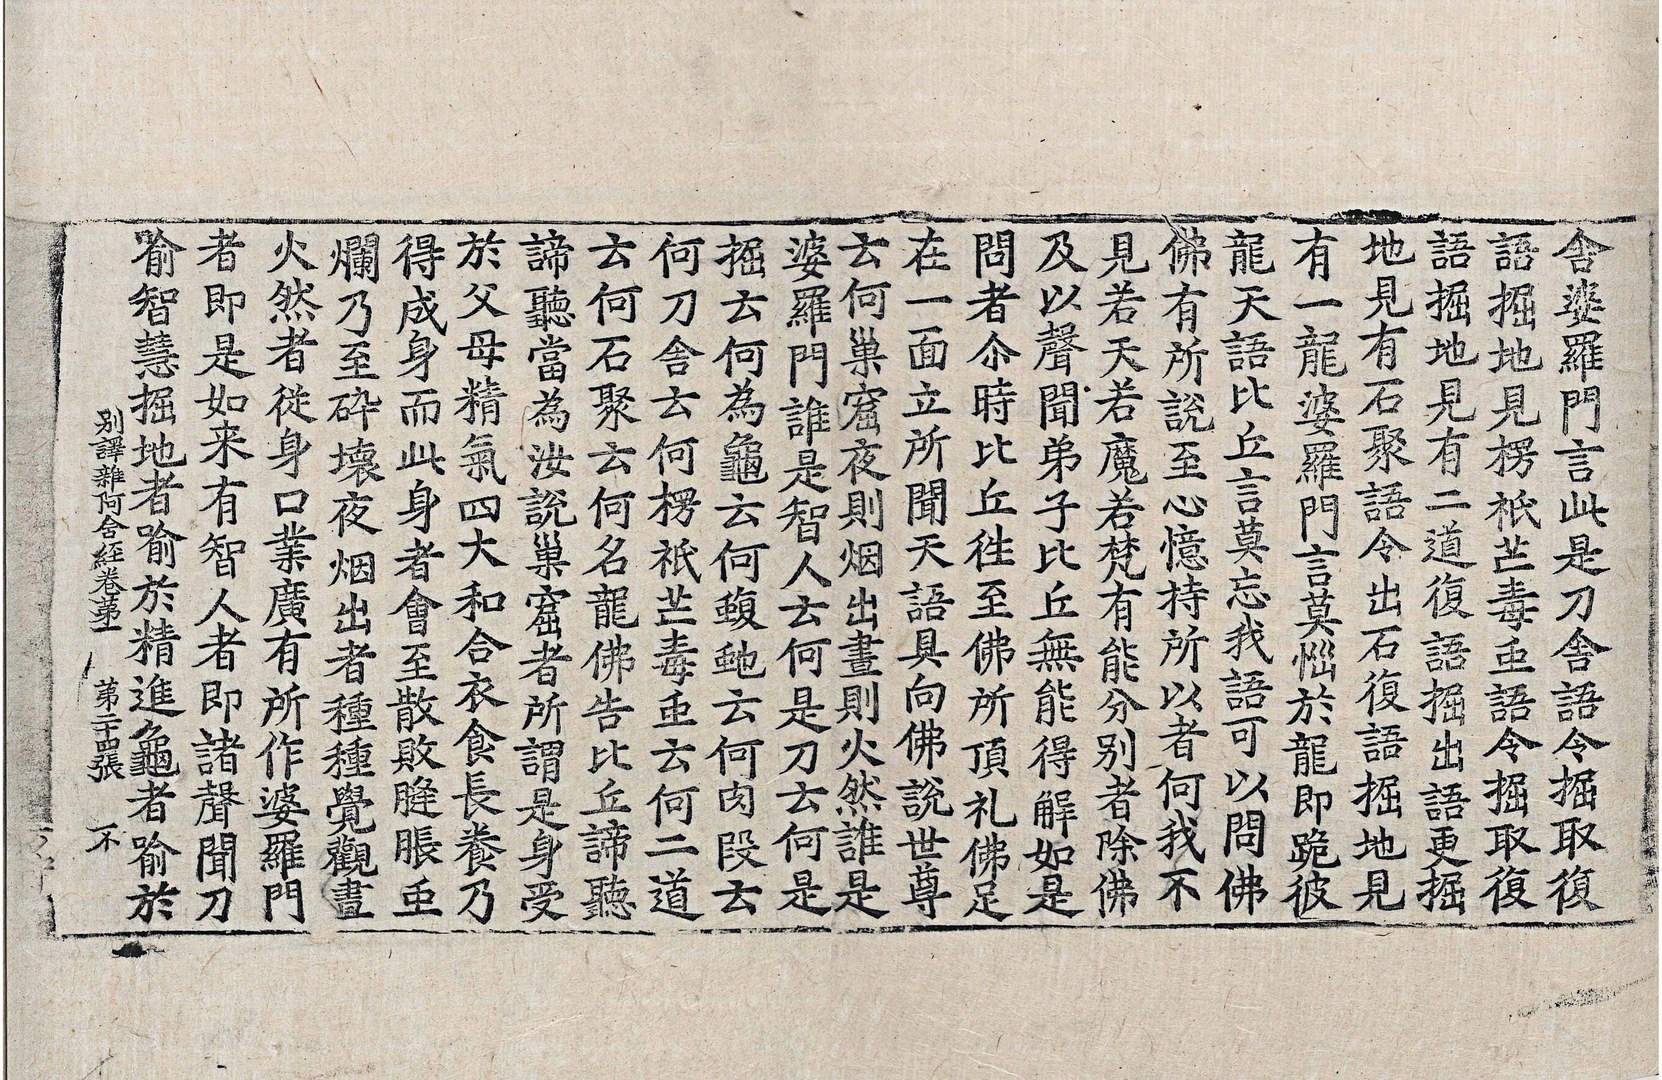 舍婆羅門言此是刀舍語令掘取復
語掘地見楞祇芒毒䖝語令掘取復
語掘地見有二道復語掘出語更掘
地見有石聚語令出石復語掘地見
有一龍婆羅門言莫惱於龍即跪彼
龍天語比丘言莫忘我語可以問佛
佛有所說至心憶持所以者何我不
見若天若魔若梵有能分别者除佛
及以聲聞弟子比丘無能得解如是
問者尒時比丘徃至佛所頂礼佛足
在一面立所聞天語具向佛說世尊
云何巢窟夜則烟出晝則火然誰是
婆羅門誰是智人云何是刀云何是
掘云何為龜云何蝮虵云何肉段云
何刀舍云何楞祇芒毒䖝云何二道
云何石聚云何名龍佛告比丘諦聽
諦聽當為汝說巢窟者所謂是身受
於父母精氣四大和合衣食長養乃
得成身而此身者會至散敗膖脹䖝
爛乃至碎壞夜烟出者種種覺觀晝
火然者從身口業廣有所作婆羅門
者即是如来有智人者即諸聲聞刀
喻智慧掘地者喻於精進龜者喻於
别譯雜阿含經卷苐一 第二十四張 不